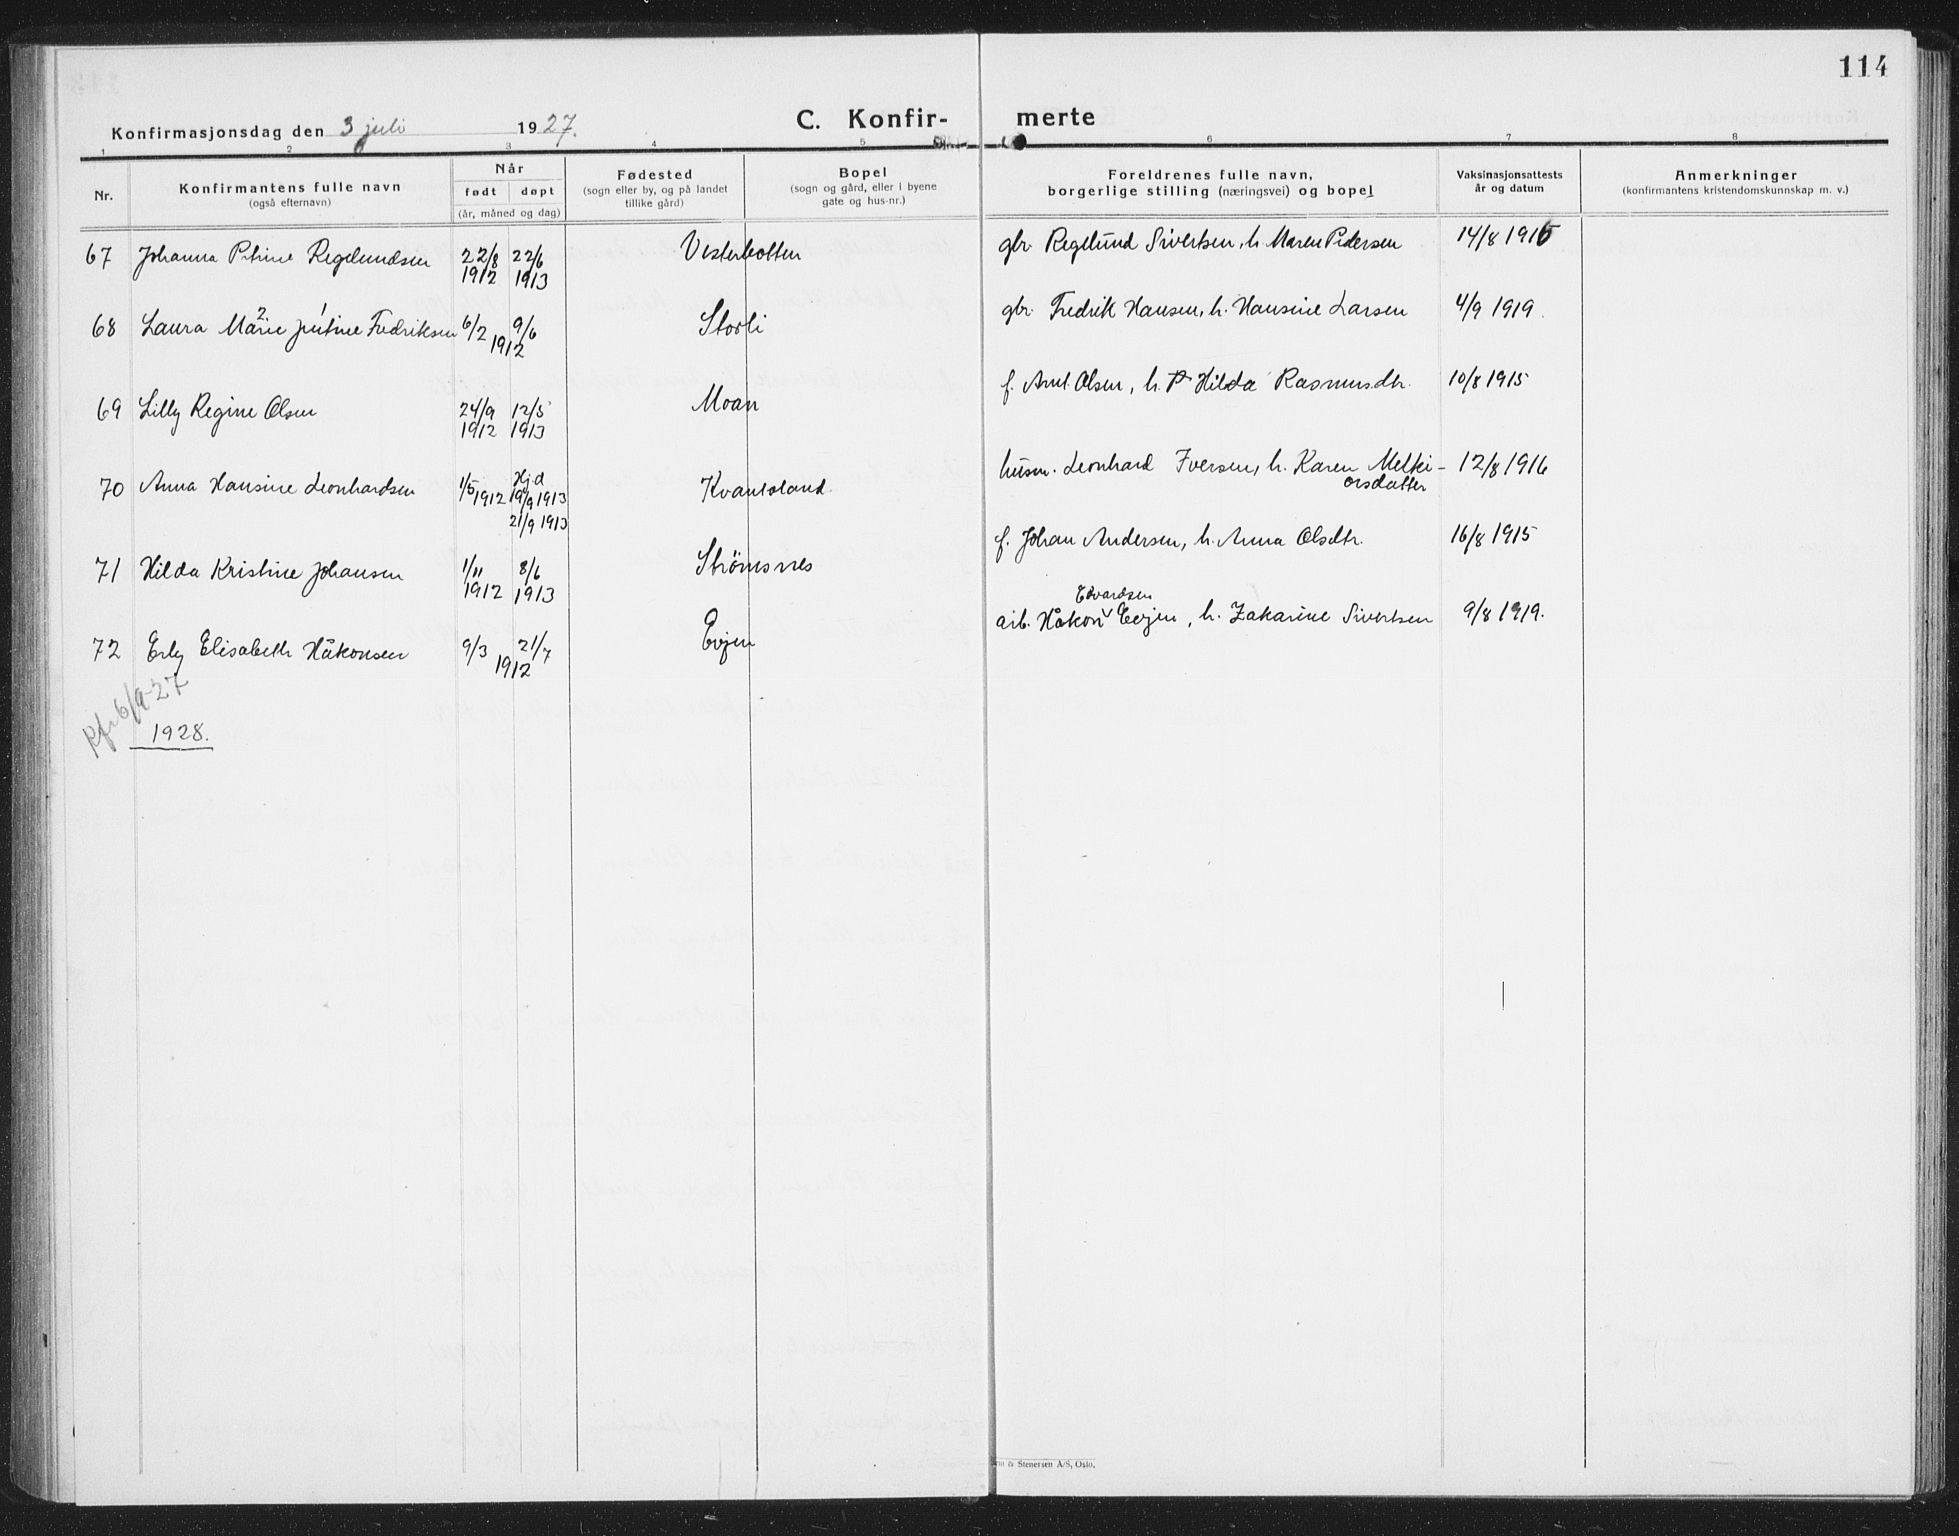 114
C. Konfirmerte
Konfirmasjonsdag den 3 juli 1927.
1 2 3 4 5 6 7 8
Nr.
Konfirmantens fulle navn
(også efternavn)
Når
født døpt
(år, måned og dag)
Fødested
(sogn eller by, og på landet
tillike gård)
Bopel
(sogn og gård, eller i byene
gate og hus-nr.)
Foreldrenes fulle navn,
borgerlige stilling (næringsvei) og bopel
Vaksinasjonsattests
år og datum
Anmerkninger
(konfirmantens kristendomskunnskap m. v.)
67 Johanna Petrine Regelundsen 22/8 1912 22/6 1913 Vesterbotten gbr. Regelund Sivertsen, h. Maren Pedersen 14/8 1915
68 Laura Marie 2 Jutine 1 Fredriksen 6/2 9/6 1912 Storli gbr. Fredrik Hansen, h. Hansine Larsen 4/9 1919.
69 Lilly Regine Olsen 24/9 1912 12/5 1913 Moan f. Arnt Olsen, h. P Hilda Rasmusdtr. 10/8 1915
70 Anna Hansine Leonhardsen 1/5 1912 Hj.d 19/9 1913 21/9 1913 Kvantoland husm. Leonhard Iversen, h. Karen Melki-
orsdatter 12/8 1916
71 Hilda Kristine Johansen 1/11 1912 8/6 1913 Strømsnes f. Johan Andersen, h. Anna Olsdtr. 16/8 1915
72 Erly Elisabeth Håkonsen 9/3 21/7 1912 Evjen arb. Håkon Edvardsen Evjen, h. Zakarine Sivertsen 9/8 1919.
6/9-27
1928.
& Stenersen A/S, Oslo.